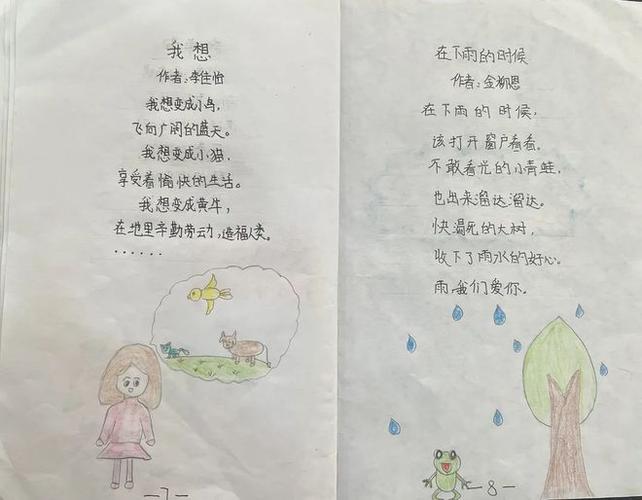 我想
作者:李佳怡
我想变成小鸟,
飞向广阔的蓝天。
我想变成小猫,
享受着愉快的生活。
我想变成黄牛,
在地里辛勤劳动,造福人类。
······
—7—
在下雨的时候
作者:金柳恩
在下雨的时候,
该打开窗户看看。
不敢看光的小青蛙,
也出来溜达溜达。
快渴死的大树,
收下了雨水的好心。
雨我们爱你.
—8—